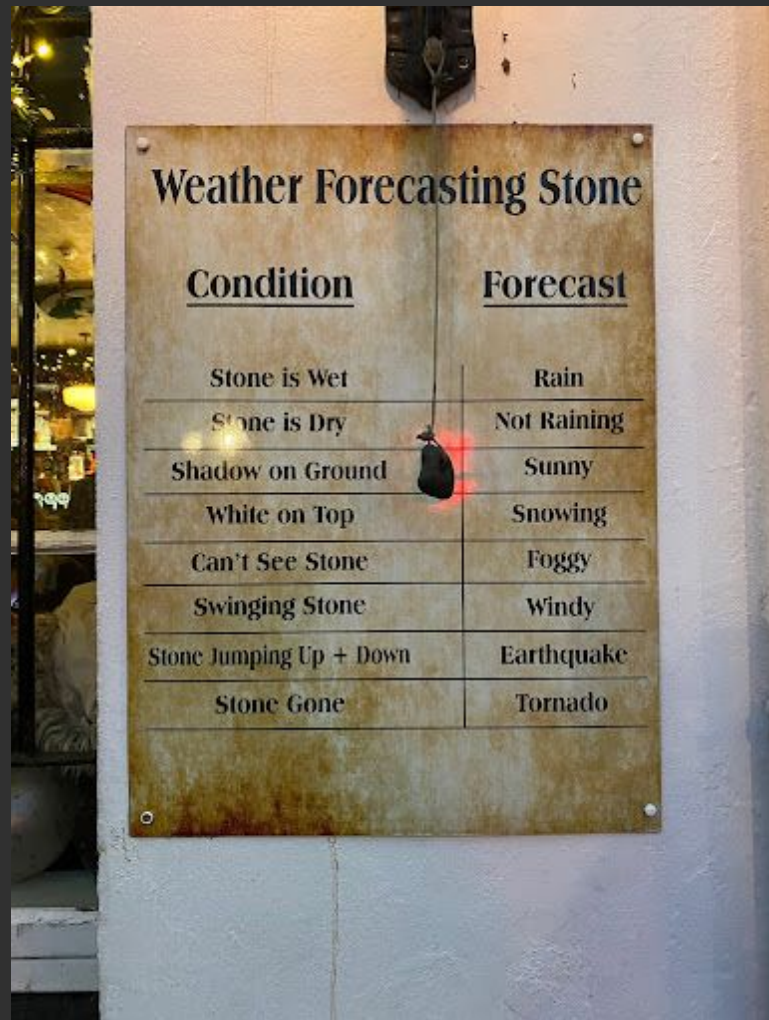 Weather Forecasting Stone
Condition Forecast
Stone is Wet Rain
Stone is Dry Not Raining
Shadow on Ground Sunny
White on Top Snowing
Can't See Stone Foggy
Swinging Stone Windy
Stone Jumping Up + Down Earthquake
Stone Gone Tornado